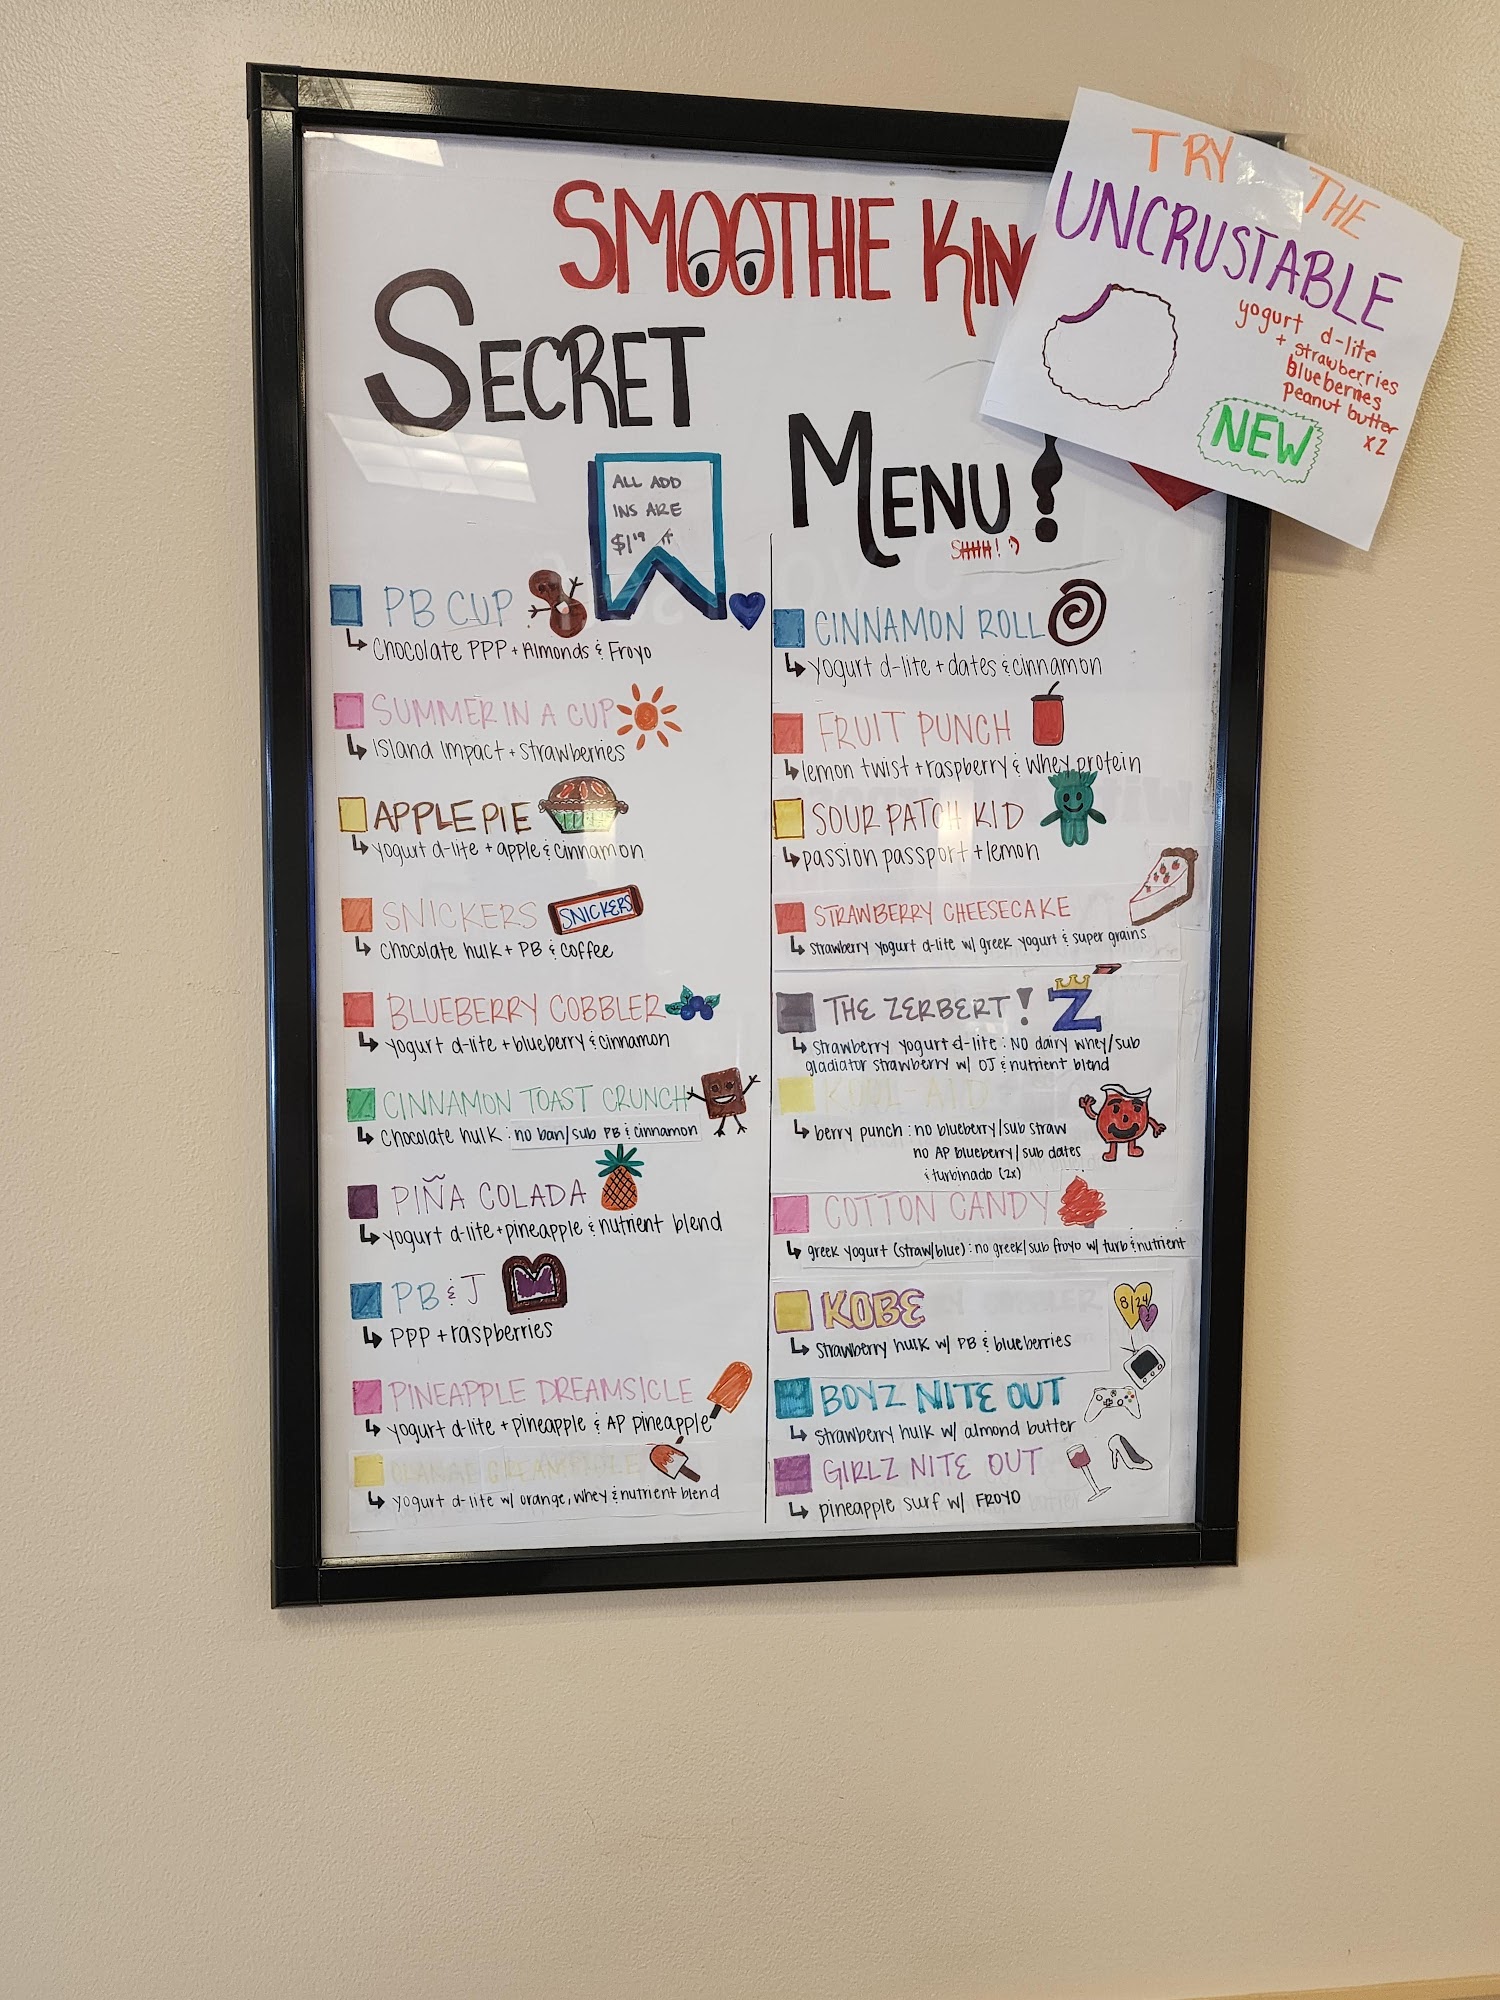 TRY THE
UNCRUSTABLE
yogurt d-lite
+ strawberries
blueberries
peanut butter
x2
NEW
SMOOTHIE KING
SECRET
MENU!
SHHH! :)
ALL ADD
INS ARE
$1.19
PB CUP
Chocolate PPP + Almonds & Froyo
SUMMER IN A CUP
Island Impact + strawberries
APPLE PIE
yogurt d-lite + apple & cinnamon
SNICKERS
SNICKERS
chocolate hulk + PB & coffee
BLUEBERRY COBBLER
yogurt d-lite + blueberry & cinnamon
CINNAMON TOAST CRUNCH
chocolate hulk : no ban/sub PB & cinnamon
PIÑA COLADA
yogurt d-lite + pineapple & nutrient blend
PB & J
PPP + raspberries
PINEAPPLE DREAMSICLE
yogurt d-lite + pineapple & AP pineapple
ORANGE CREAMSICLE
yogurt d-lite w/ orange, whey & nutrient blend
CINNAMON ROLL
yogurt d-lite + dates & cinnamon
FRUIT PUNCH
lemon twist + raspberry & whey protein
SOUR PATCH KID
passion passport + lemon
STRAWBERRY CHEESECAKE
strawberry yogurt d-lite w/ greek yogurt & super grains
THE ZERBERT! Z
strawberry yogurt d-lite : NO dairy whey/sub
gladiator strawberry w/ OJ & nutrient blend
KOOL-AID
berry punch : no blueberry/sub straw
no AP blueberry/sub dates
& turbinado (2x)
COTTON CANDY
greek yogurt (straw/blue) : no greek/sub froyo w/ turb & nutrient
KOBE
8/24
2
strawberry hulk w/ PB & blueberries
BOYZ NITE OUT
strawberry hulk w/ almond butter
GIRLZ NITE OUT
pineapple surf w/ FROYO